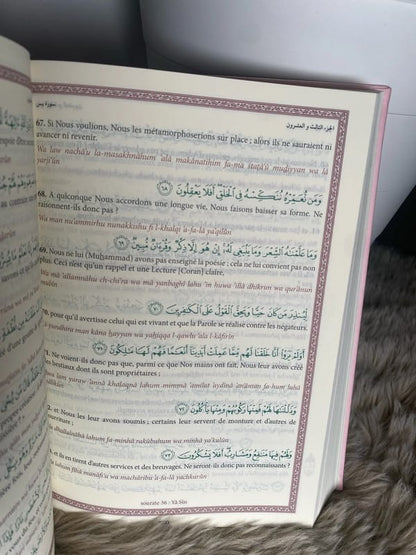 سورة يس
الجزء الثالث و العشرون
67. Si Nous voulions, Nous les métamorphoserions sur place ; alors ils ne sauraient ni
avancer ni revenir.
Wa law nachâ'u la-masakhnâhum 'alâ makânatihim fa-ma staṭâ'û muḍiyyan wa lâ
yarji'ûn
وَمَن نُّعَمِّرْهُ نُنَكِّسْهُ فِي الْخَلْقِ أَفَلَا يَعْقِلُونَ ٦٨
68. A quiconque Nous accordons une longue vie, Nous faisons baisser sa forme. Ne
raisonnent-ils donc pas ?
Wa man nu'ammirhu nunakkishu fi l-khalqi 'a-fa-lâ ya'qilûn
وَمَا عَلَّمْنَاهُ الشِّعْرَ وَمَا يَنبَغِي لَهُ إِنْ هُوَ إِلَّا ذِكْرٌ وَقُرْآنٌ مُّبِينٌ ٦٩
69. Nous ne lui (Muḥammad) avons pas enseigné la poésie ; cela ne lui convient pas non
plus. Ceci n'est qu'un rappel et une Lecture [Coran] claire,
Wa mâ 'allamnâhu ch-chi'ra wa mâ yanbaghî lahu 'in huwa 'illâ dhikrun wa qur'ânun
mubîn
لِّيُنذِرَ مَن كَانَ حَيًّا وَيَحِقَّ الْقَوْلُ عَلَى الْكَافِرِينَ ٧٠
70. pour qu'il avertisse celui qui est vivant et que la Parole se réalise contre les négateurs.
yundhira man kâna ḥayyan wa yaḥiqqa l-qawlu 'ala l-kâfirîn
أَوَلَمْ يَرَوْا أَنَّا خَلَقْنَا لَهُم مِّمَّا عَمِلَتْ أَيْدِينَا أَنْعَامًا فَهُمْ لَهَا مَالِكُونَ ٧١
1. Ne voient-ils donc pas que, parmi ce que Nos mains ont fait, Nous leur avons créé
des bestiaux dont ils sont propriétaires ;
lam yaraw 'annâ khalaqnâ lahum mimmâ 'amilat aydînâ an'âman fa-hum lahâ
وَذَلَّلْنَاهَا لَهُمْ فَمِنْهَا رَكُوبُهُمْ وَمِنْهَا يَأْكُلُونَ ٧٢
2. et Nous les leur avons soumis ; certains leur servent de monture et d'autres de
dhallalnâhâ lahum fa-minhâ rakûbuhum wa minhâ ya'kulûn
وَلَهُمْ فِيهَا مَنَافِعُ وَمَشَارِبُ أَفَلَا يَشْكُرُونَ ٧٣
et ils en tirent d'autres services et des breuvages. Ne seront-ils donc pas reconnaissants ?
lahum fîhâ manâfi'u wa machâribu 'a-fa-lâ yachkurûn
sourate 36 : Yâ Sîn